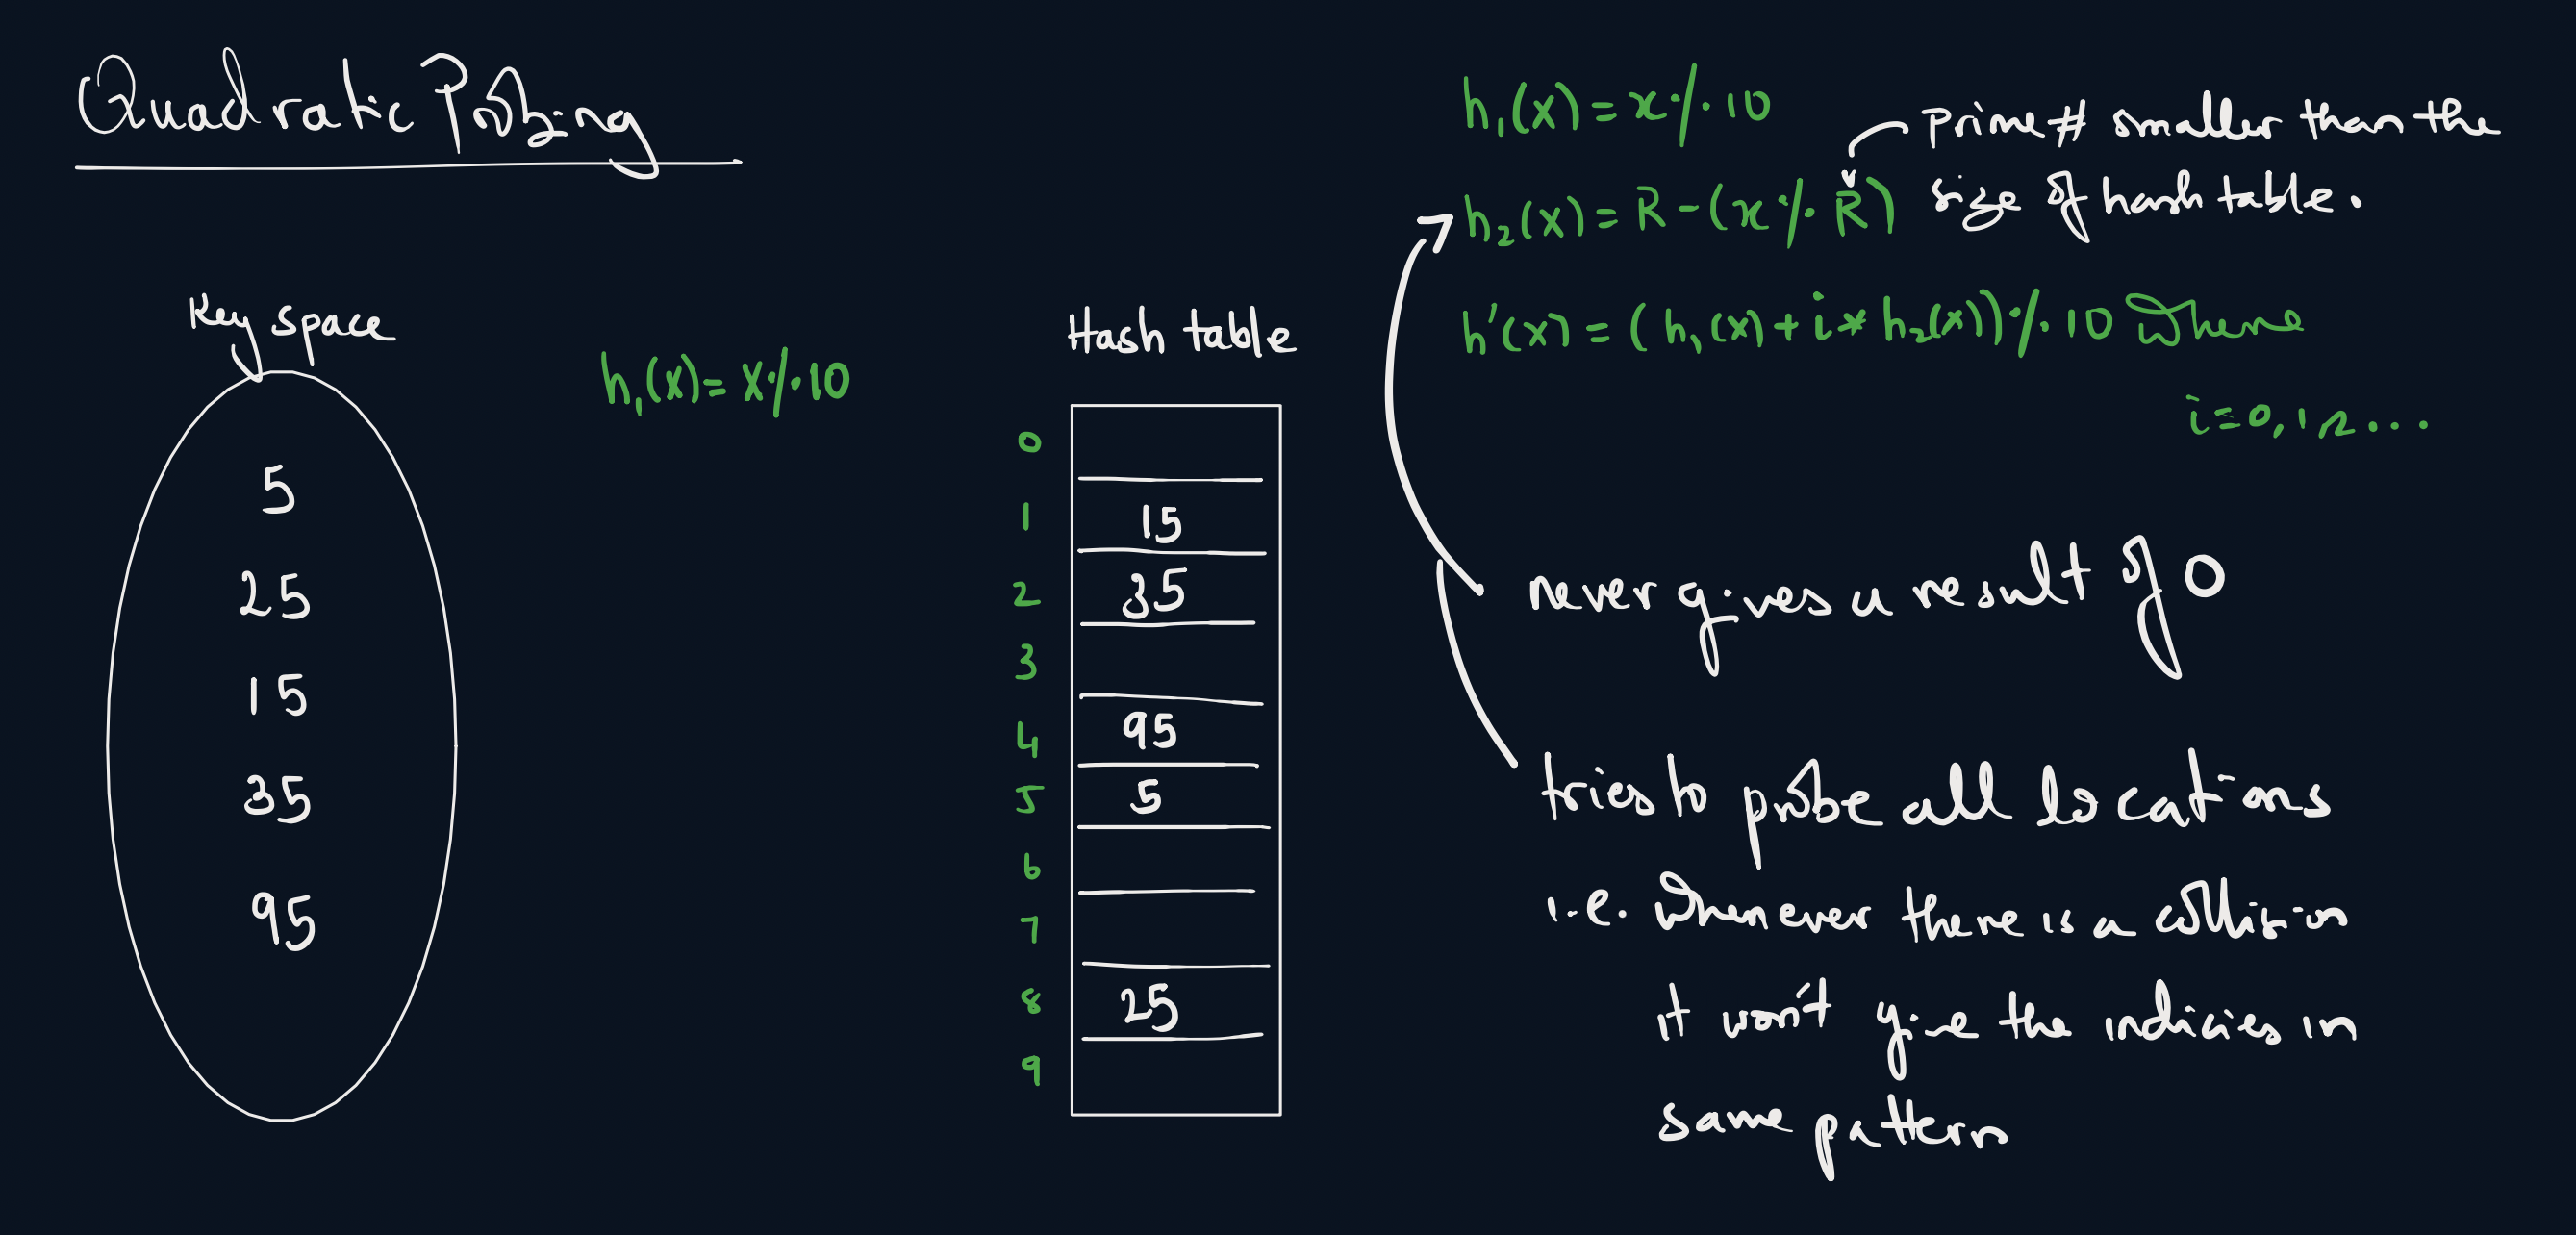 Quadratic Probing
Key space
5
25
15
35
95
h₁(x) = x % 10
Hash table
0
1 15
2 35
3
4 95
5 5
6
7
8 25
9
h₁(x) = x % 10
prime # smaller than the
size of hash table.
h₂(x) = R - (x % R)
h'(x) = (h₁(x) + i * h₂(x)) % 10 where
i = 0, 1, 2 ...
never gives a result of 0
tries to probe all locations
i.e. whenever there is a collision
it won't give the indicies in
same pattern